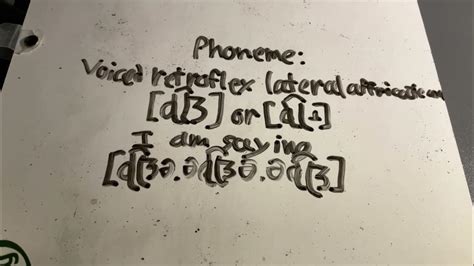 Phoneme:
Voiced retroflex lateral affricate
[d͡ɭʒ] or [d͡ɭ˔]
I am saying
[d͡ɭʒə.əd͡ɭʒə.əd͡ɭʒ]